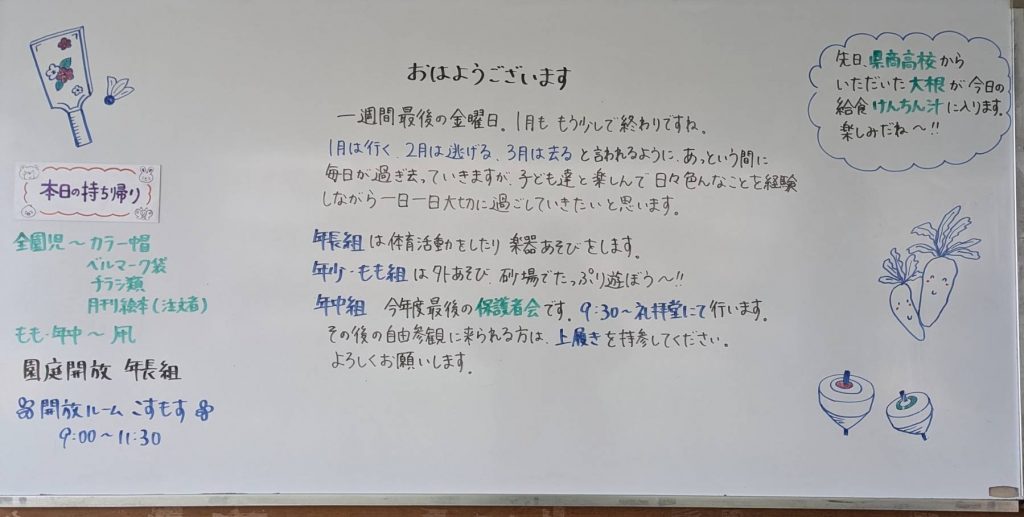 おはようございます
一週間最後の金曜日。1月も もう少しで終わりですね。
1月は行く、2月は逃げる、3月は去ると言われるように、あっという間に
毎日が過ぎ去っていきますが、子ども達と楽しんで日々色んなことを経験
しながら一日一日大切に過ごしていきたいと思います。
年長組は体育活動をしたり楽器あそびをします。
年少・もも組は外あそび、砂場でたっぷり遊ぼう〜!!
年中組 今年度最後の保護者会です。9:30〜礼拝堂にて行います。
その後の自由参観に来られる方は、上履きを持参してください。
よろしくお願いします。
本日の持ち帰り
全園児〜カラー帽
ベルマーク袋
チラシ類
月刊絵本(注文者)
もも・年中〜凧
園庭開放 年長組
開放ルーム こすもす
9:00〜11:30
先日、県商高校から
いただいた大根が今日の
給食けんちん汁に入ります。
楽しみだね〜!!